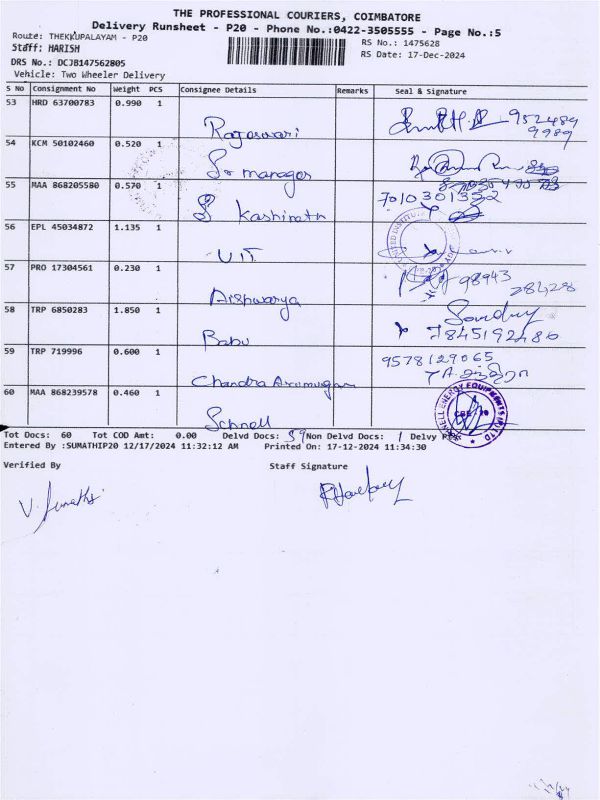 THE PROFESSIONAL COURIERS, COIMBATORE
Delivery Runsheet - P20 - Phone No.:0422-3505555 - Page No.:5
Route: THEKKUPALAYAM - P20
RS No.: 1475628
Staff: HARISH
RS Date: 17-Dec-2024
DRS No.: DCJB147562805
Vehicle: Two Wheeler Delivery
S No Consignment No Weight PCS Consignee Details Remarks Seal & Signature
53 HRD 63700783 0.990 1 Rajaswari
54 KCM 50102460 0.520 1 Sr manager
55 MAA 868205580 0.570 1 kashinath 7010301352
56 EPL 45034872 1.135 1 UIT
57 PRO 17304561 0.230 1 Aishwarya 98943 28428
58 TRP 6850283 1.850 1 Babu 7845192486
59 TRP 719996 0.600 1 Chandra Arumugam 9578129065
60 MAA 868239578 0.460 1 Schnell
Tot Docs: 60 Tot COD Amt: 0.00 Delvd Docs: 59 Non Delvd Docs: 1
Entered By :SUMATHIP20 12/17/2024 11:32:12 AM Printed On: 17-12-2024 11:34:30
Verified By Staff Signature
V. Sumathi